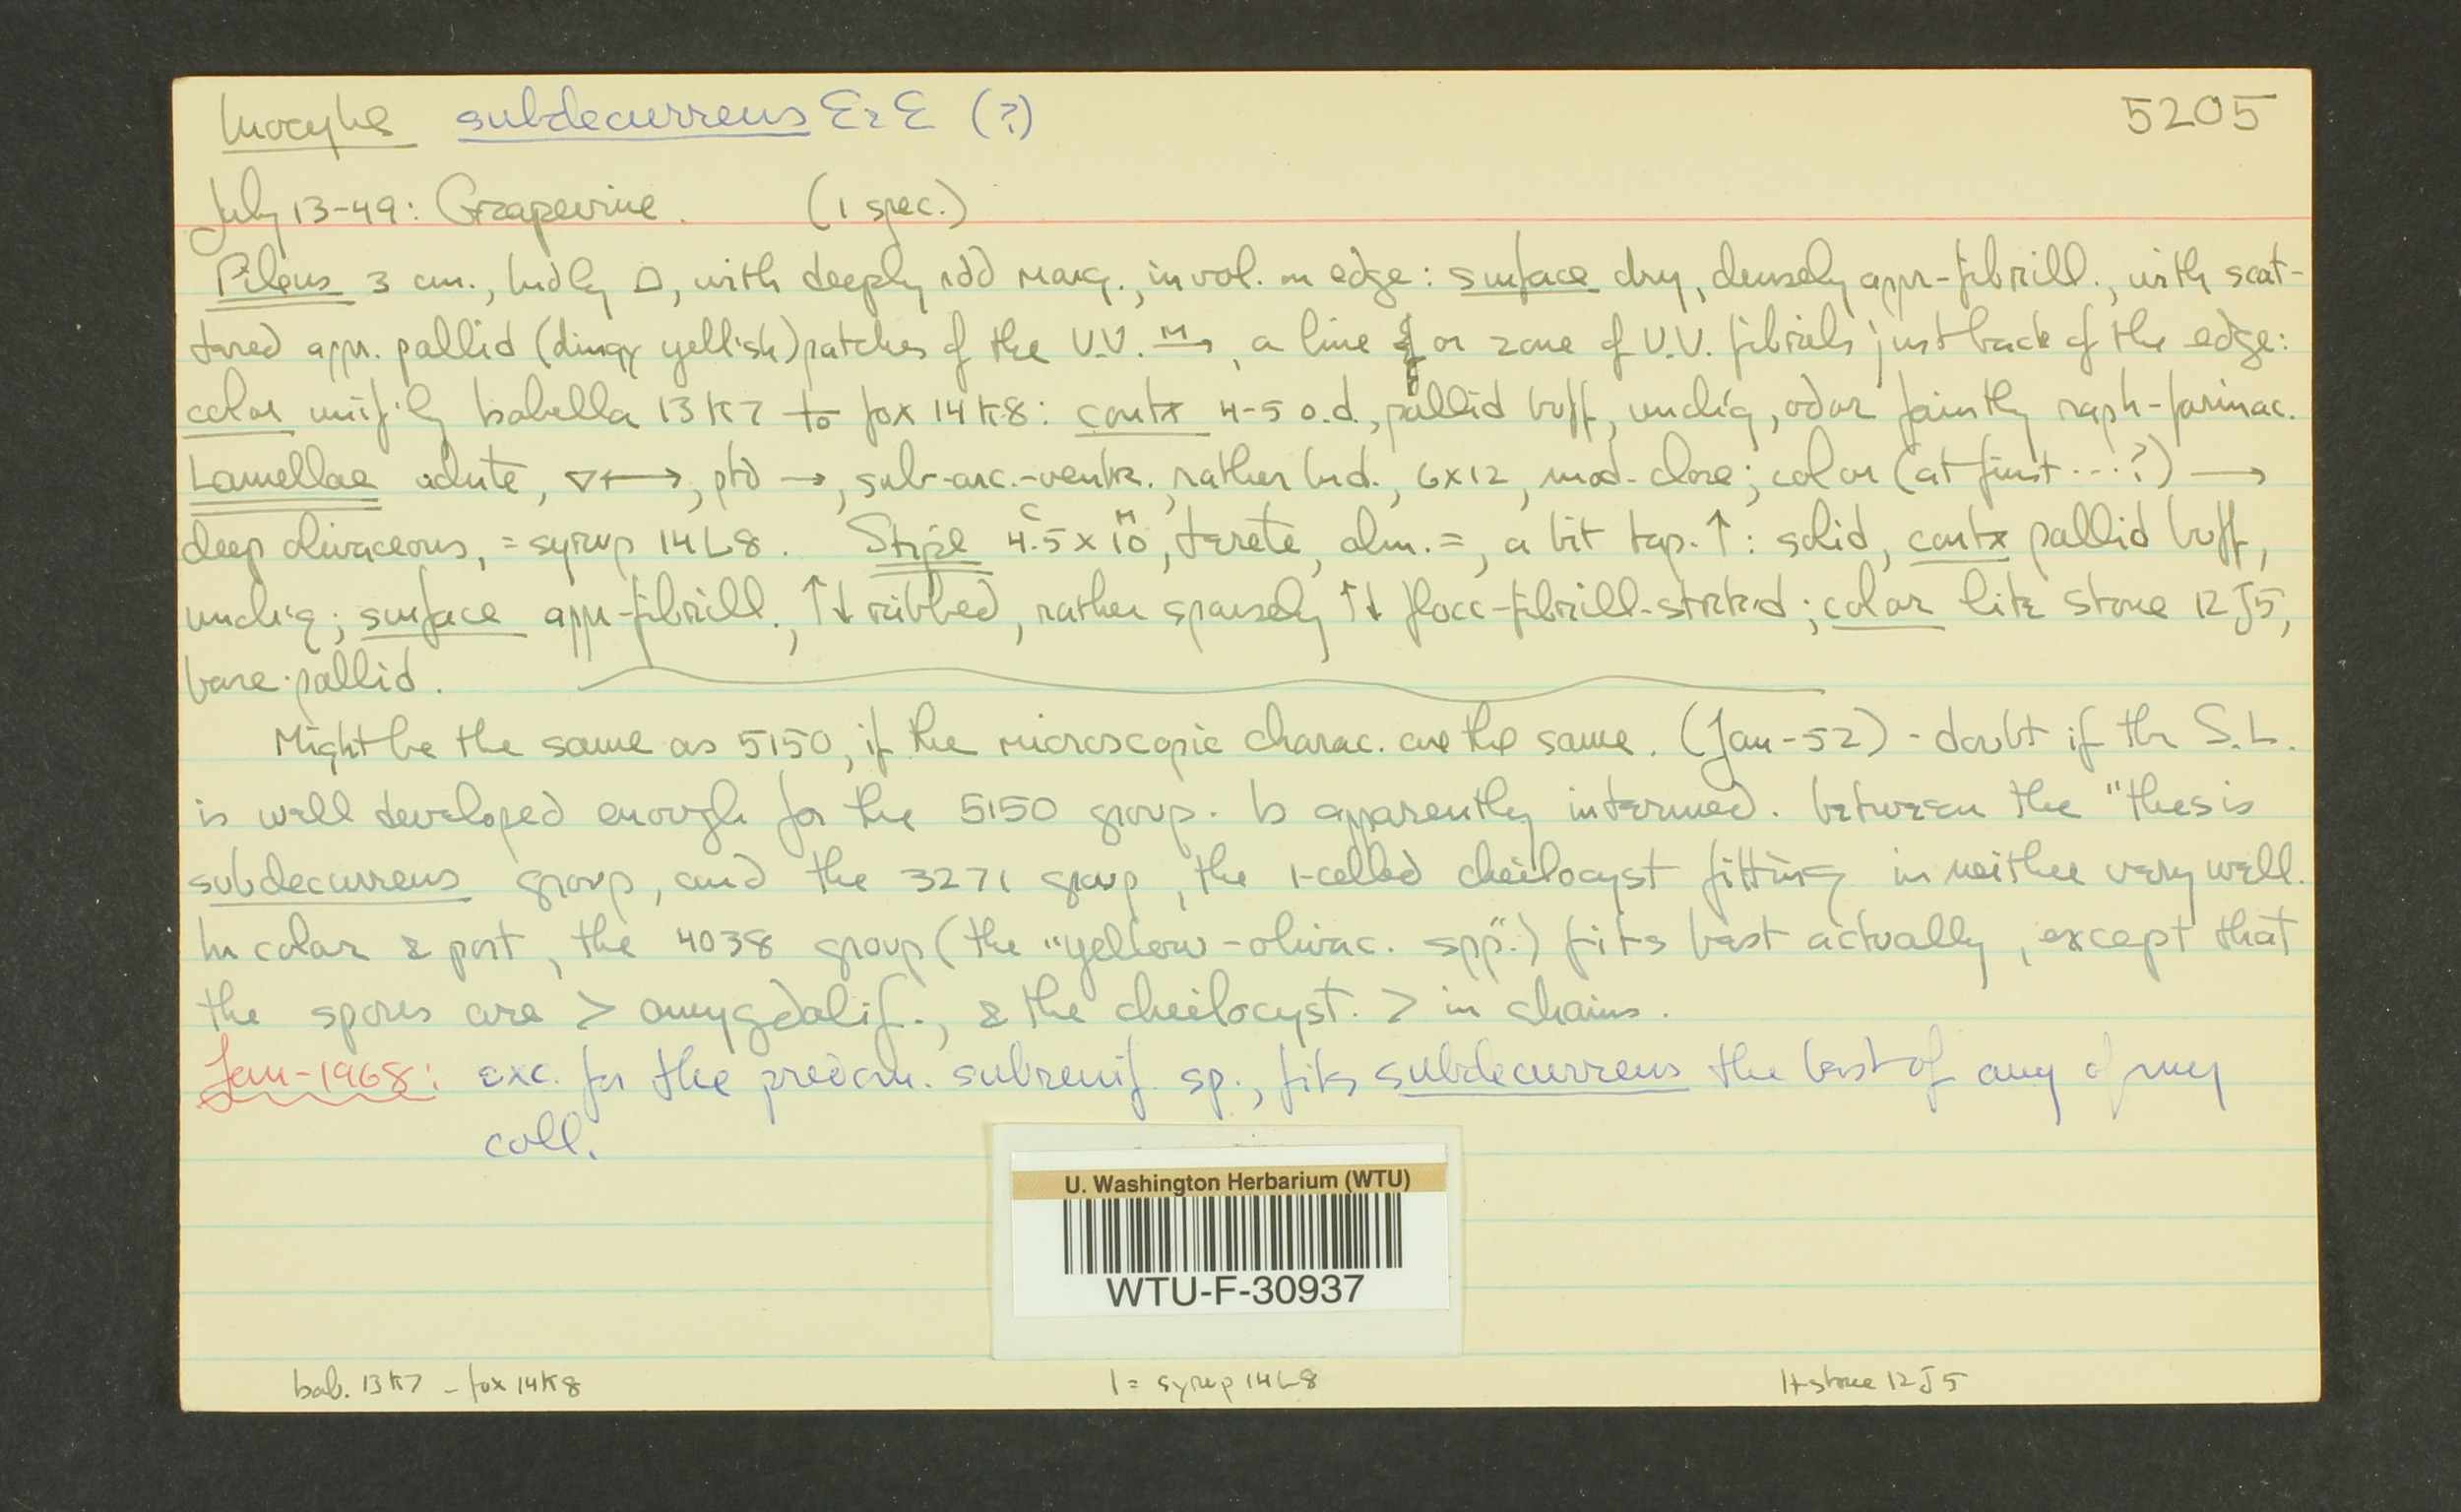 Inocybe subdecurrens E&E (?) 5205
July 13-49: Grapevine. (1 spec.)
Pileus 3 cm., brdly △, with deeply rdd marg., invol. on edge: surface dry, densely appr-fibrill., with scat-
tered appr. pallid (dingy yellish) patches of the U.V. M→, a line or zone of U.V. fibrils just back of the edge:
color unif'ly Isabella 13K7 to fox 14K8: contx 4-5 o.d., pallid buff, unchg, odor faintly raph-farinac.
Lamellae adnte, ▽←→, ptd →, sub-arc.-ventr., rather brd., 6x12, mod-close; color (at first ---?) →
deep olivaceous, = syrup 14L8. Stipe 4.5 C x 10 M, terete, alm. =, a bit tap. ↑: solid, contx pallid buff,
unchg; surface appr-fibrill., ↑↓ ribbed, rather sparsely ↑↓ flocc-fibrill-strktd; color lite stone 12J5,
base pallid.
Might be the same as 5150, if the microscopic charac. are the same. (Jan-52) - doubt if the S.L.
is well developed enough for the 5150 group. Is apparently intermed. between the "thesis
subdecurrens group, and the 3271 group, the 1-celled cheilocyst fitting in neither very well.
In color & port, the 4038 group (the "yellow-olivac. spp".) fits best actually, except that
the spores are > amygdalif., & the cheilocyst. > in chains.
Jan-1968: exc. for the predom. subrenif. sp., fits subdecurrens the best of any of my
coll.
U. Washington Herbarium (WTU)
WTU-F-30937
Isab. 13K7 - fox 14K8 l = syrup 14L8 lt stone 12J5